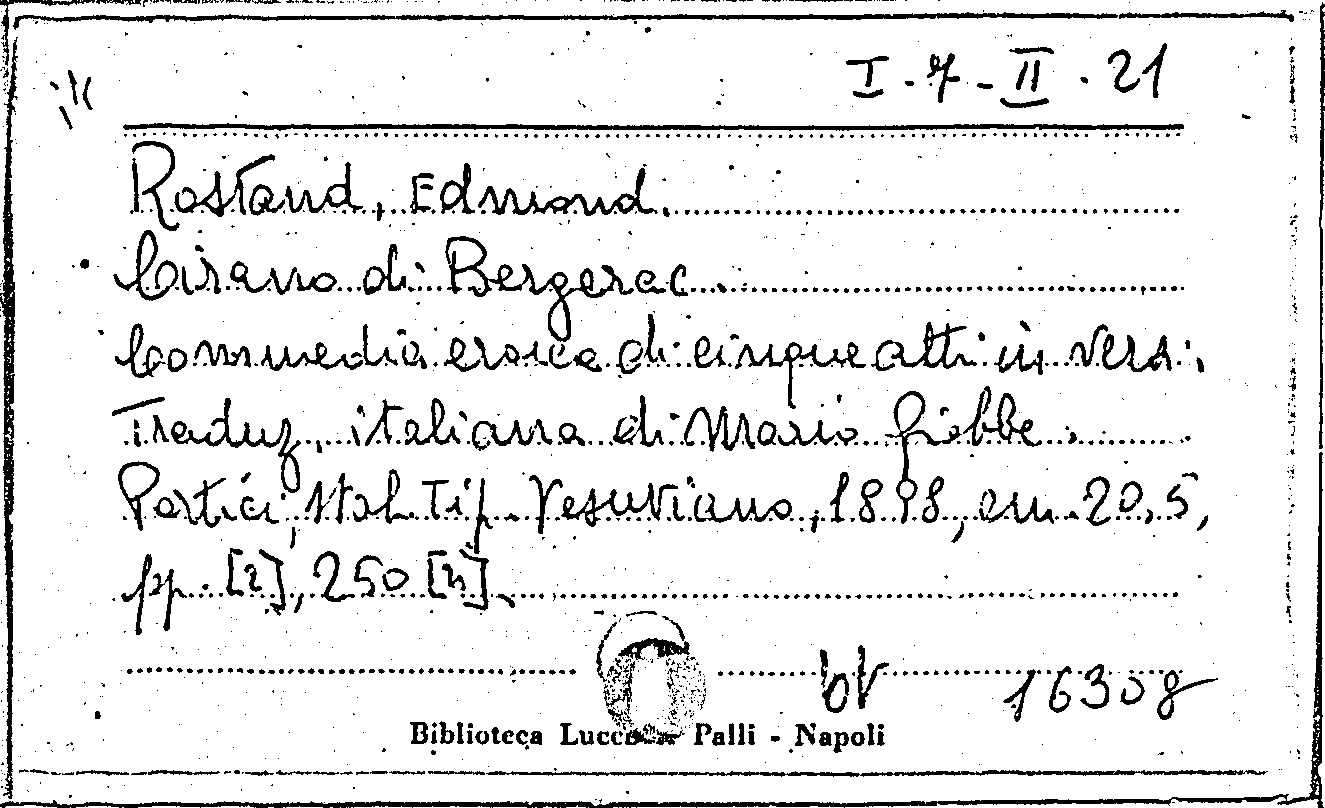 I-7-II.21
Rostand, Edmond.
Cirano di Bergerac.
Commedia eroica di cinque atti in versi.
Traduz. italiana di Mario Giobbe.
Portici, Stab. Tip. Vesuviano, 1898, cm. 20,5,
pp. [2], 250 [2].
16308
Biblioteca Palli - Napoli